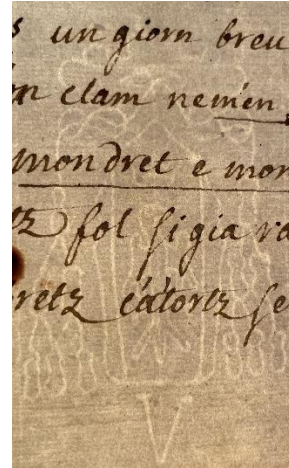 un giorn breu
clam nemen
mon dret e mon
fol si gia
retz catortz se